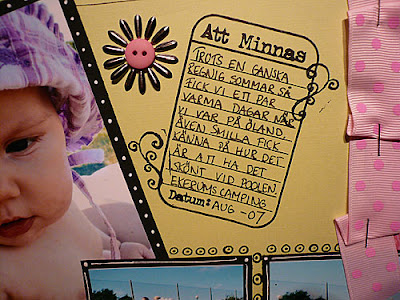 Att Minnas
TROTS EN GANSKA
REGNIG SOMMAR SÅ
FICK VI ETT PAR
VARMA DAGAR NÄR
VI VAR PÅ ÖLAND.
ÄVEN SMILLA FICK
KÄNNA PÅ HUR DET
ÄR ATT HA DET
SKÖNT VID POOLEN.
EKERUMS CAMPING
Datum: AUG -07